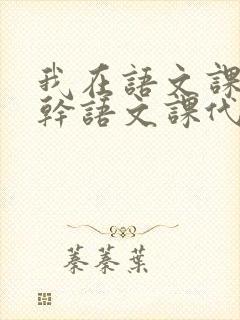 我在語文課
幹語文課代
蓁蓁葉